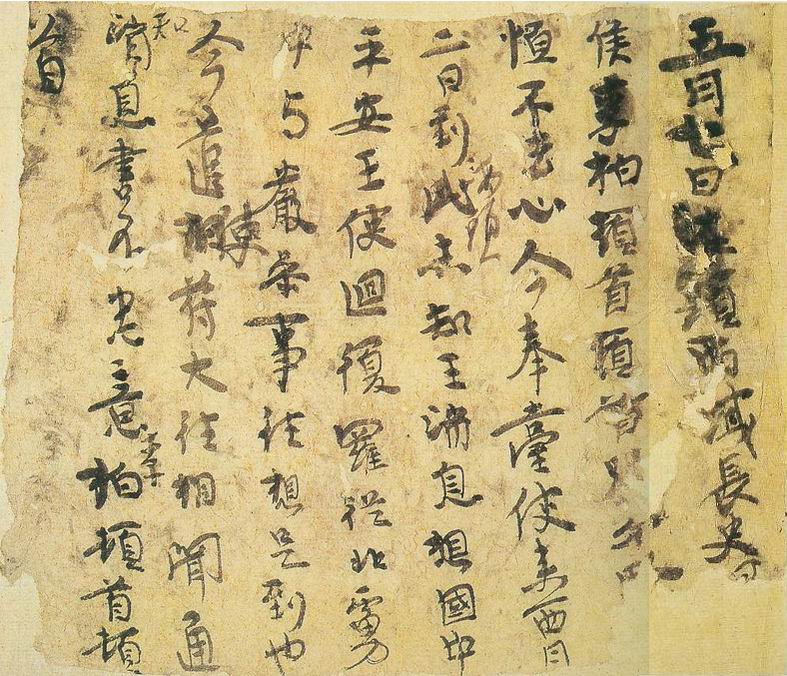 五月七日西域長史
侯李柏頓首頓首
恒不去心今奉臺使來西月
二日到此海頭未知王消息想國中
平安王使迴復羅從北虜
中与嚴參事往想是到也
今遣使苻大往相聞通
知消息書不悉意李柏頓首頓
首